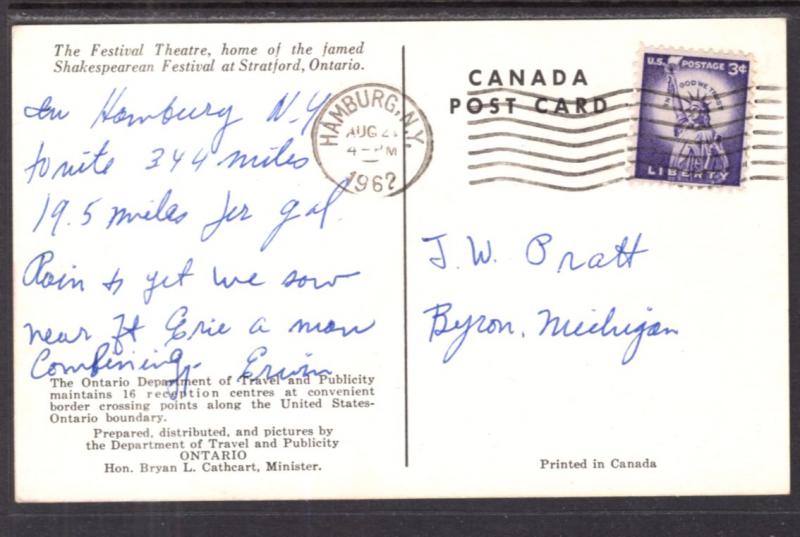 The Festival Theatre, home of the famed
Shakespearean Festival at Stratford, Ontario.
In Hamburg N.Y
tonite 344 miles
19.5 miles per gal.
Rain & yet we saw
near Ft Erie a man
Combining. Erwin
The Ontario Department of Travel and Publicity
maintains 16 reception centres at convenient
border crossing points along the United States-
Ontario boundary.
Prepared, distributed, and pictures by
the Department of Travel and Publicity
ONTARIO
Hon. Bryan L. Cathcart, Minister.
HAMBURG, N.Y.
AUG 21
4 PM
1962
CANADA
POST CARD
U.S. POSTAGE 3¢
IN GOD WE TRUST
LIBERTY
J. W. Pratt
Byron, Michigan
Printed in Canada